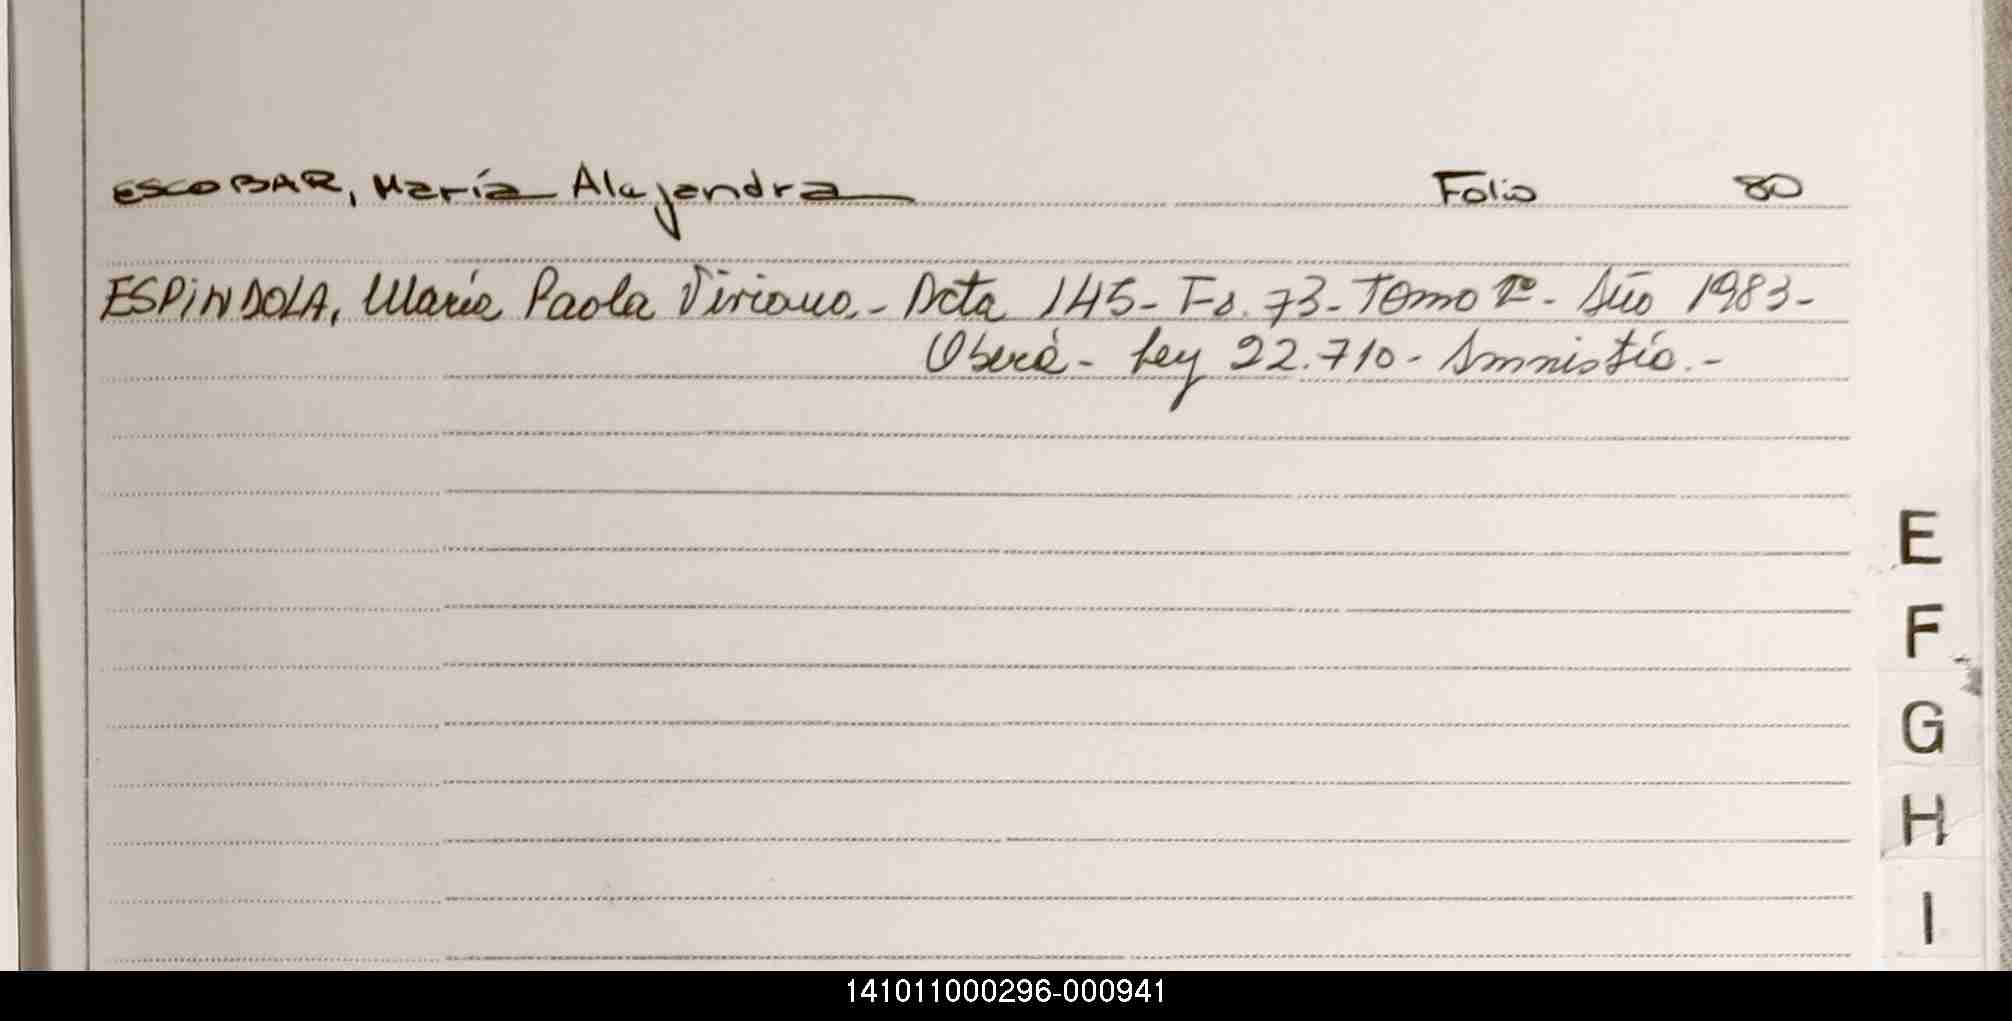 ESCOBAR, María Alejandra Folio 80
ESPINDOLA, María Paola Viviana.- Acta 145- Fs. 73- Tomo 2º- Año 1983-
Oberá- Ley 22.710- Amnistía.-
E
F
G
H
I
141011000296-000941